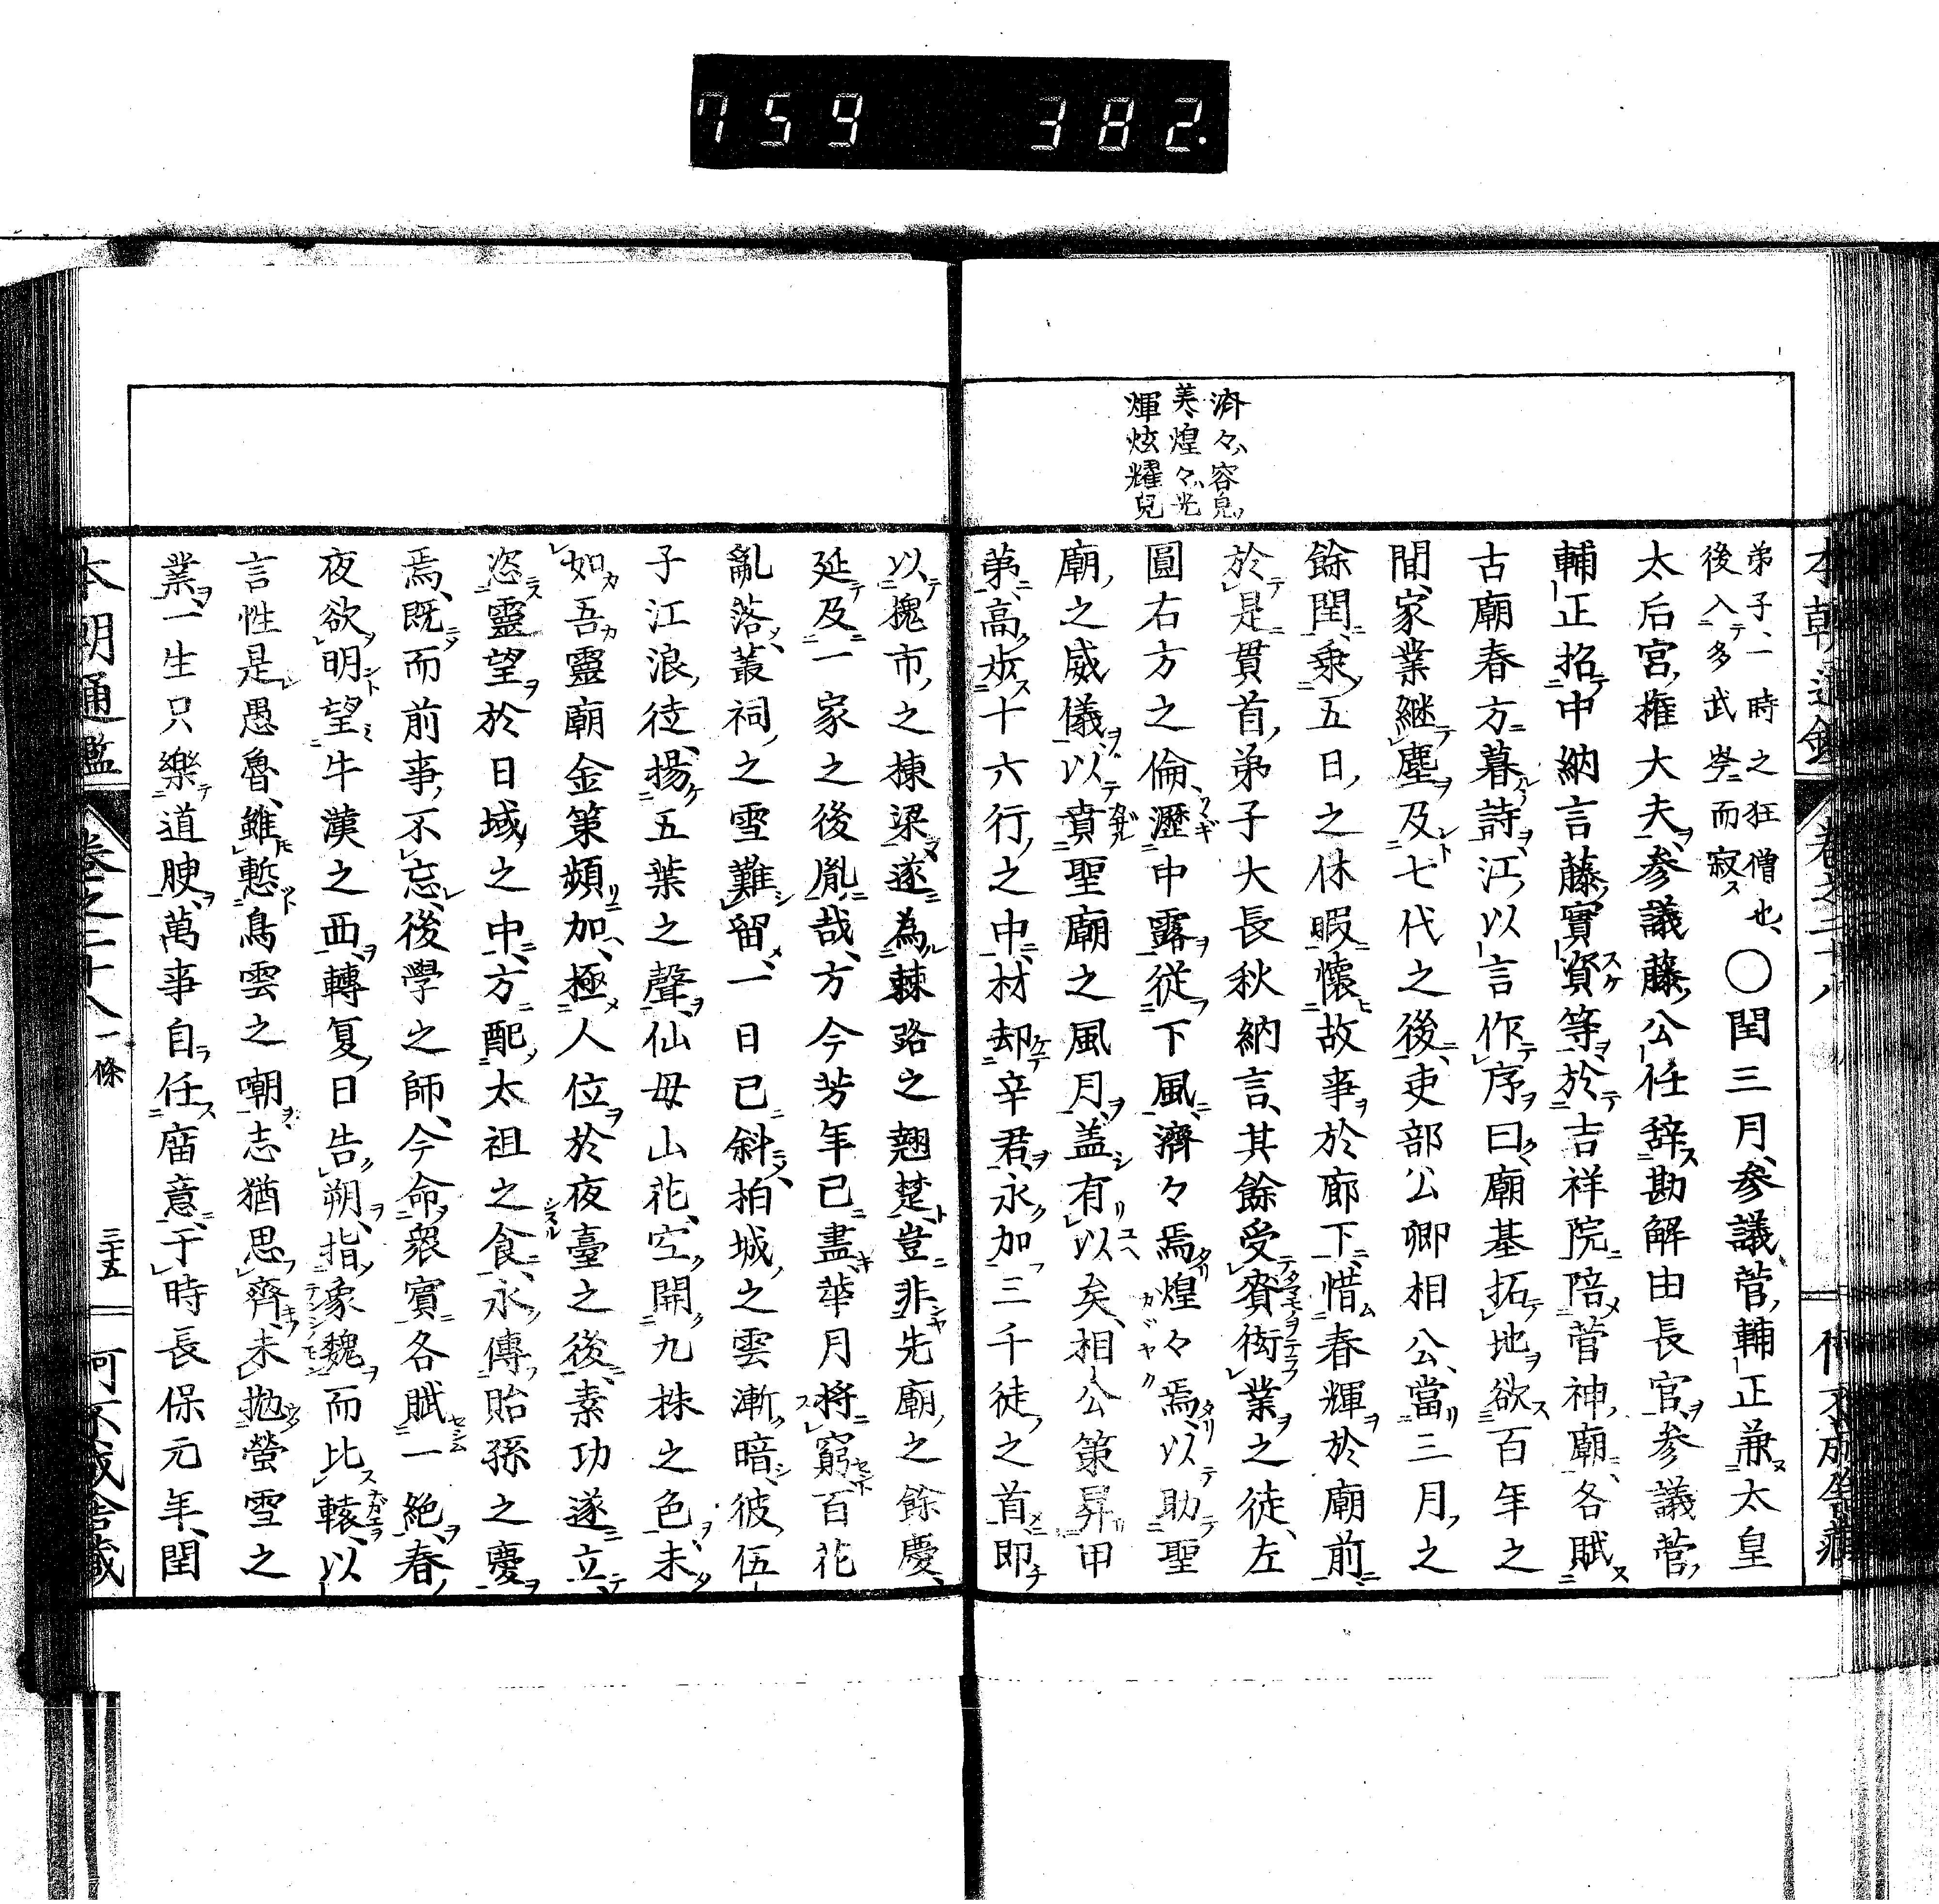 759 382.
濟々ハ容皃
美煌々ハ光
輝炫耀皃
弟子一時之狂僧也
後入多武峯而寂
〇閏三月參議菅輔正兼太皇
太后宮權大夫參議藤公任辞勘解由長官參議菅
輔正招中納言藤實資等於吉祥院陪菅神廟各賦
古廟春方暮詩江以言作序曰廟基拓地欲百年之
間家業継塵及七代之後吏部公卿相公當三月之
餘閏乗五日之休暇懷故事於廊下惜春輝於廟前
於是貫首弟子大長秋納言其餘受賚衒業之徒左
圓右方之倫瀝中露従下風濟々焉煌々焉以助聖
廟之威儀以賁聖廟之風月盖有以矣相公策昇甲
第高歩十六行之中材却辛君永加三千徒之首即
以槐市之棟梁遂為棘路之翹楚豈非先廟之餘慶
延及一家之後胤哉方今芳年已盡華月将窮百花
亂落叢祠之雪難留一日已斜柏城之雲漸暗彼伍
子江浪徒揚五葉之聲仙母山花空開九株之色未
如吾靈廟金策頻加極人位於夜臺之後素功遂立
恣靈望於日域之中方配太祖之食永傳貽孫之慶
焉既而前事不忘後學之師今命衆賓各賦一絶春
夜欲明望牛漢之西轉夏日告朔指象魏而比轅以
言性是愚魯雖慙鳥雲之嘲志猶思齊未抛螢雪之
業一生只樂道腴萬事自任庿意于時長保元年閏
本朝通鑑
卷之二十八
一條
三十五